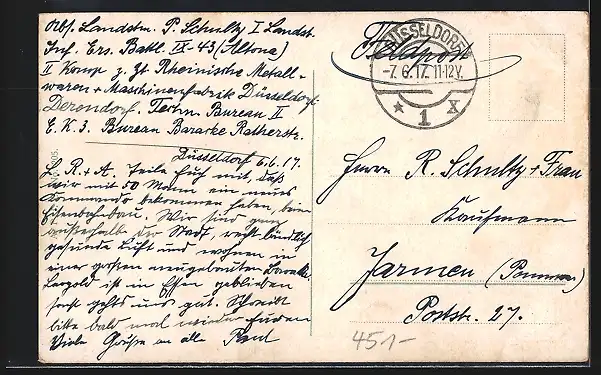 Abs. Landstm. P. Schultz I Landst.
Inf. Ers. Batl. IX-43 (Altona)
II Komp z. Zt. Rheinische Metall-
waren + Maschinenfabrik Düsseldorf-
Derendorf. Techn. Bureau II
E.K.3. Bureau Baracke Ratherstr.
Düsseldorf 6.6.17.
L. R. + A. Teile Euch mit, daß
wir mit 50 Mann ein neues
Kommando bekommen haben, beim
Eisenbahnbau. Wir sind ganz
außerhalb der Stadt, recht ländlich
gesunde Luft und wohnen in
einer großen neugebauten Baracke.
Leopold ist in Essen geblieben
sonst gehts uns gut. Schreibt
bitte bald mal wieder Euren
Viele Grüße an alle Paul
Feldpost
DÜSSELDORF
-7.6.17.11-12V.
* 1 X
Herrn R. Schultz + Frau
Kaufmann
Jarmen (Pommern)
Poststr. 27.
451-